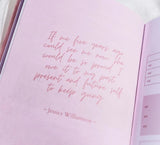 If me five years ago
could see me now she
would be so proud. I
owe it to my past,
present and future self
to keep going.
- Jessica Williamson -